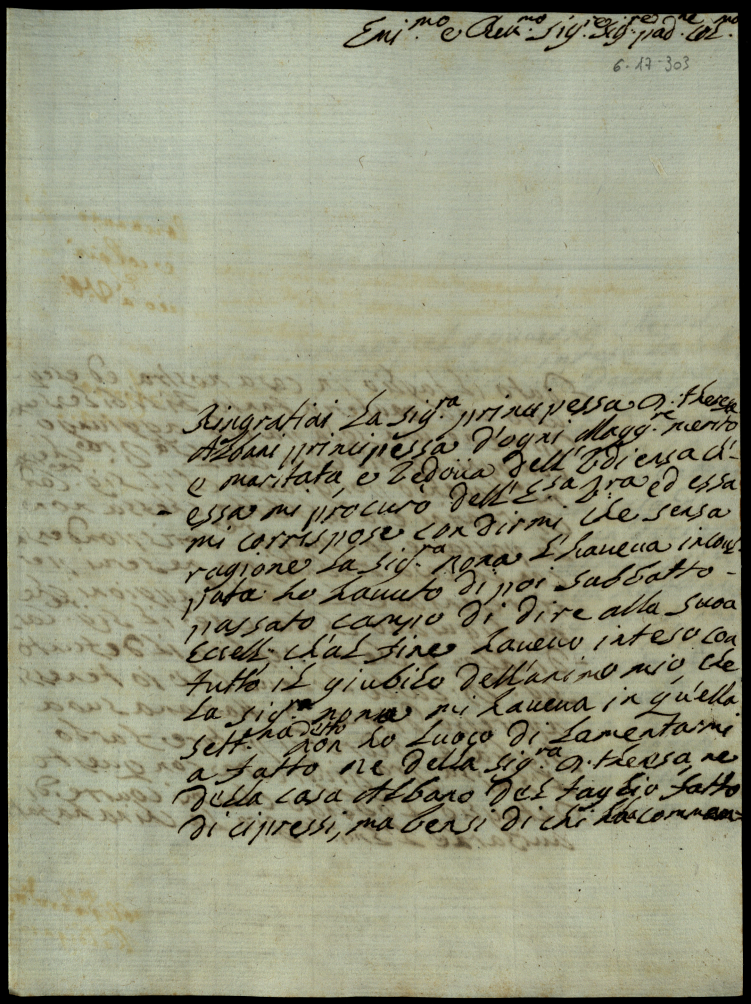 Emi.mo e Reu.mo Sig.re Sig.re pad.ne Col.mo
6-17-303
Ringratiai la Sig.ra principessa D. theresa
Albani principessa d'ogni Magg.re merito
e maritata, e Vedoua dell'Vdiensa ch'
essa mi procurò dell'E.sa Vra ed essa
mi corrispose con dirmi, che sensa
ragione la Sig.ra Nona l'haueua incol
pata ho hauuto di poi Sabbatto
passato campo di dire alla Suoa
Eccell. ch'al fine haueuo inteso con
tutto il giubilo dell'animo mio che
la Sig.ra nona mi haueua in quella
sett. ha detto non ho luogo di lamentarmi
a fatto ne della Sig.ra D. theresa, ne
della casa Albano del taglio fatto
di cipressi, ma bensi di chi ha comman